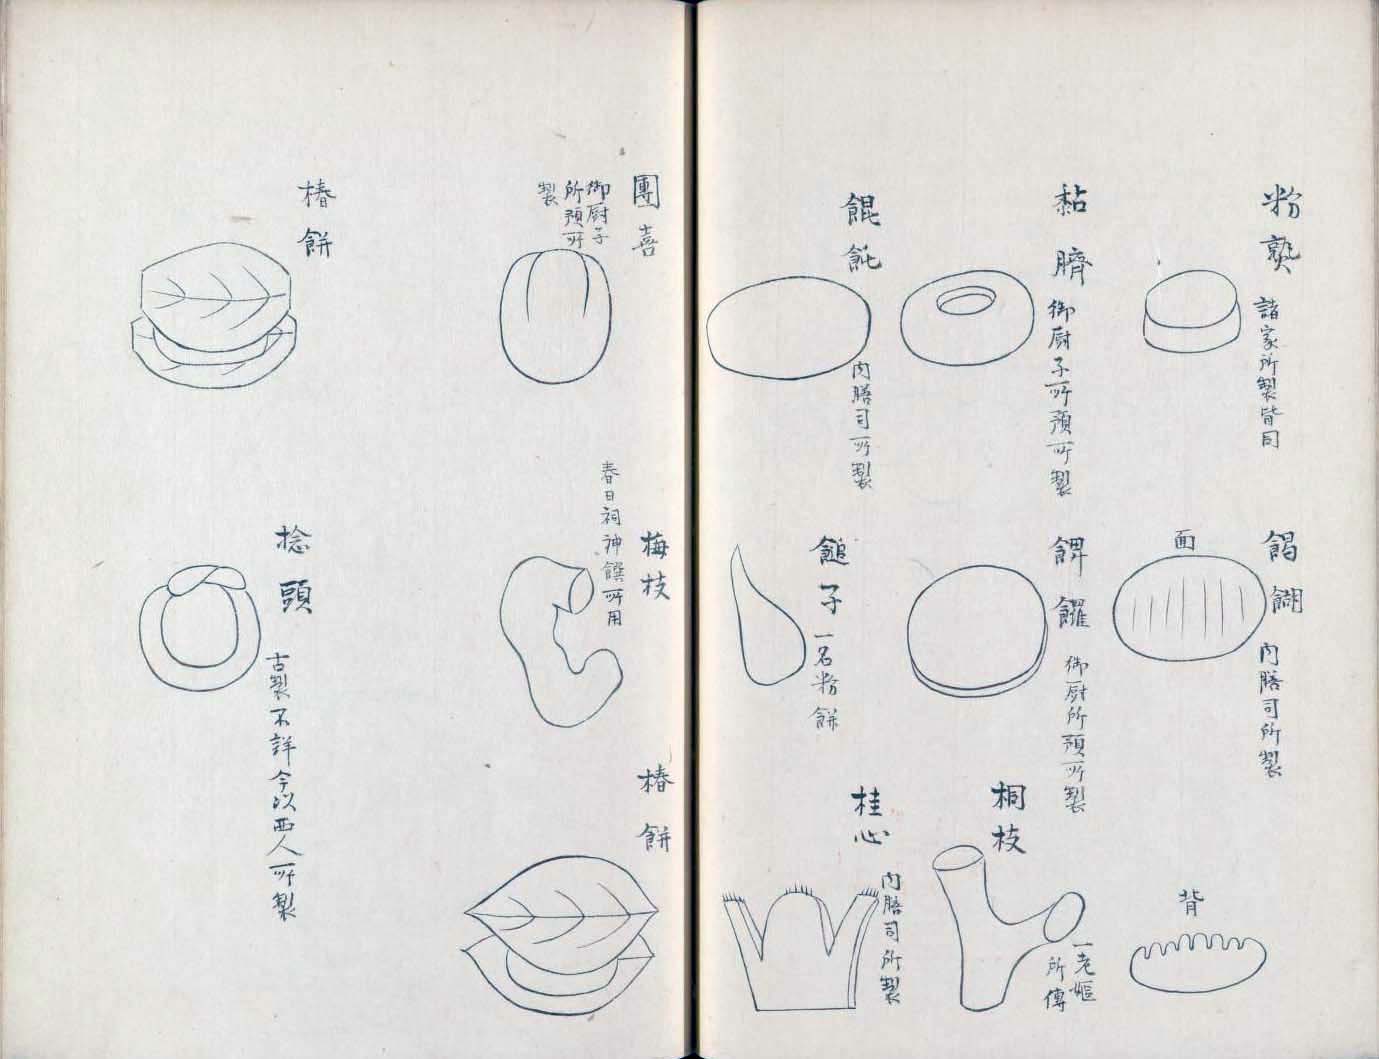 粉熟
諸家所製皆同
餲餬
内膳司所製
面
背
黏臍
御厨子所預所製
饆饠
御厨所預所製
桐枝
一老嫗
所傳
餛飩
内膳司所製
䭔子
一名粉餅
桂心
内膳司所製
團喜
御厨子
所預所
製
梅枝
春日祠神饌所用
椿餅
椿餅
捻頭
古製不詳今以西人所製